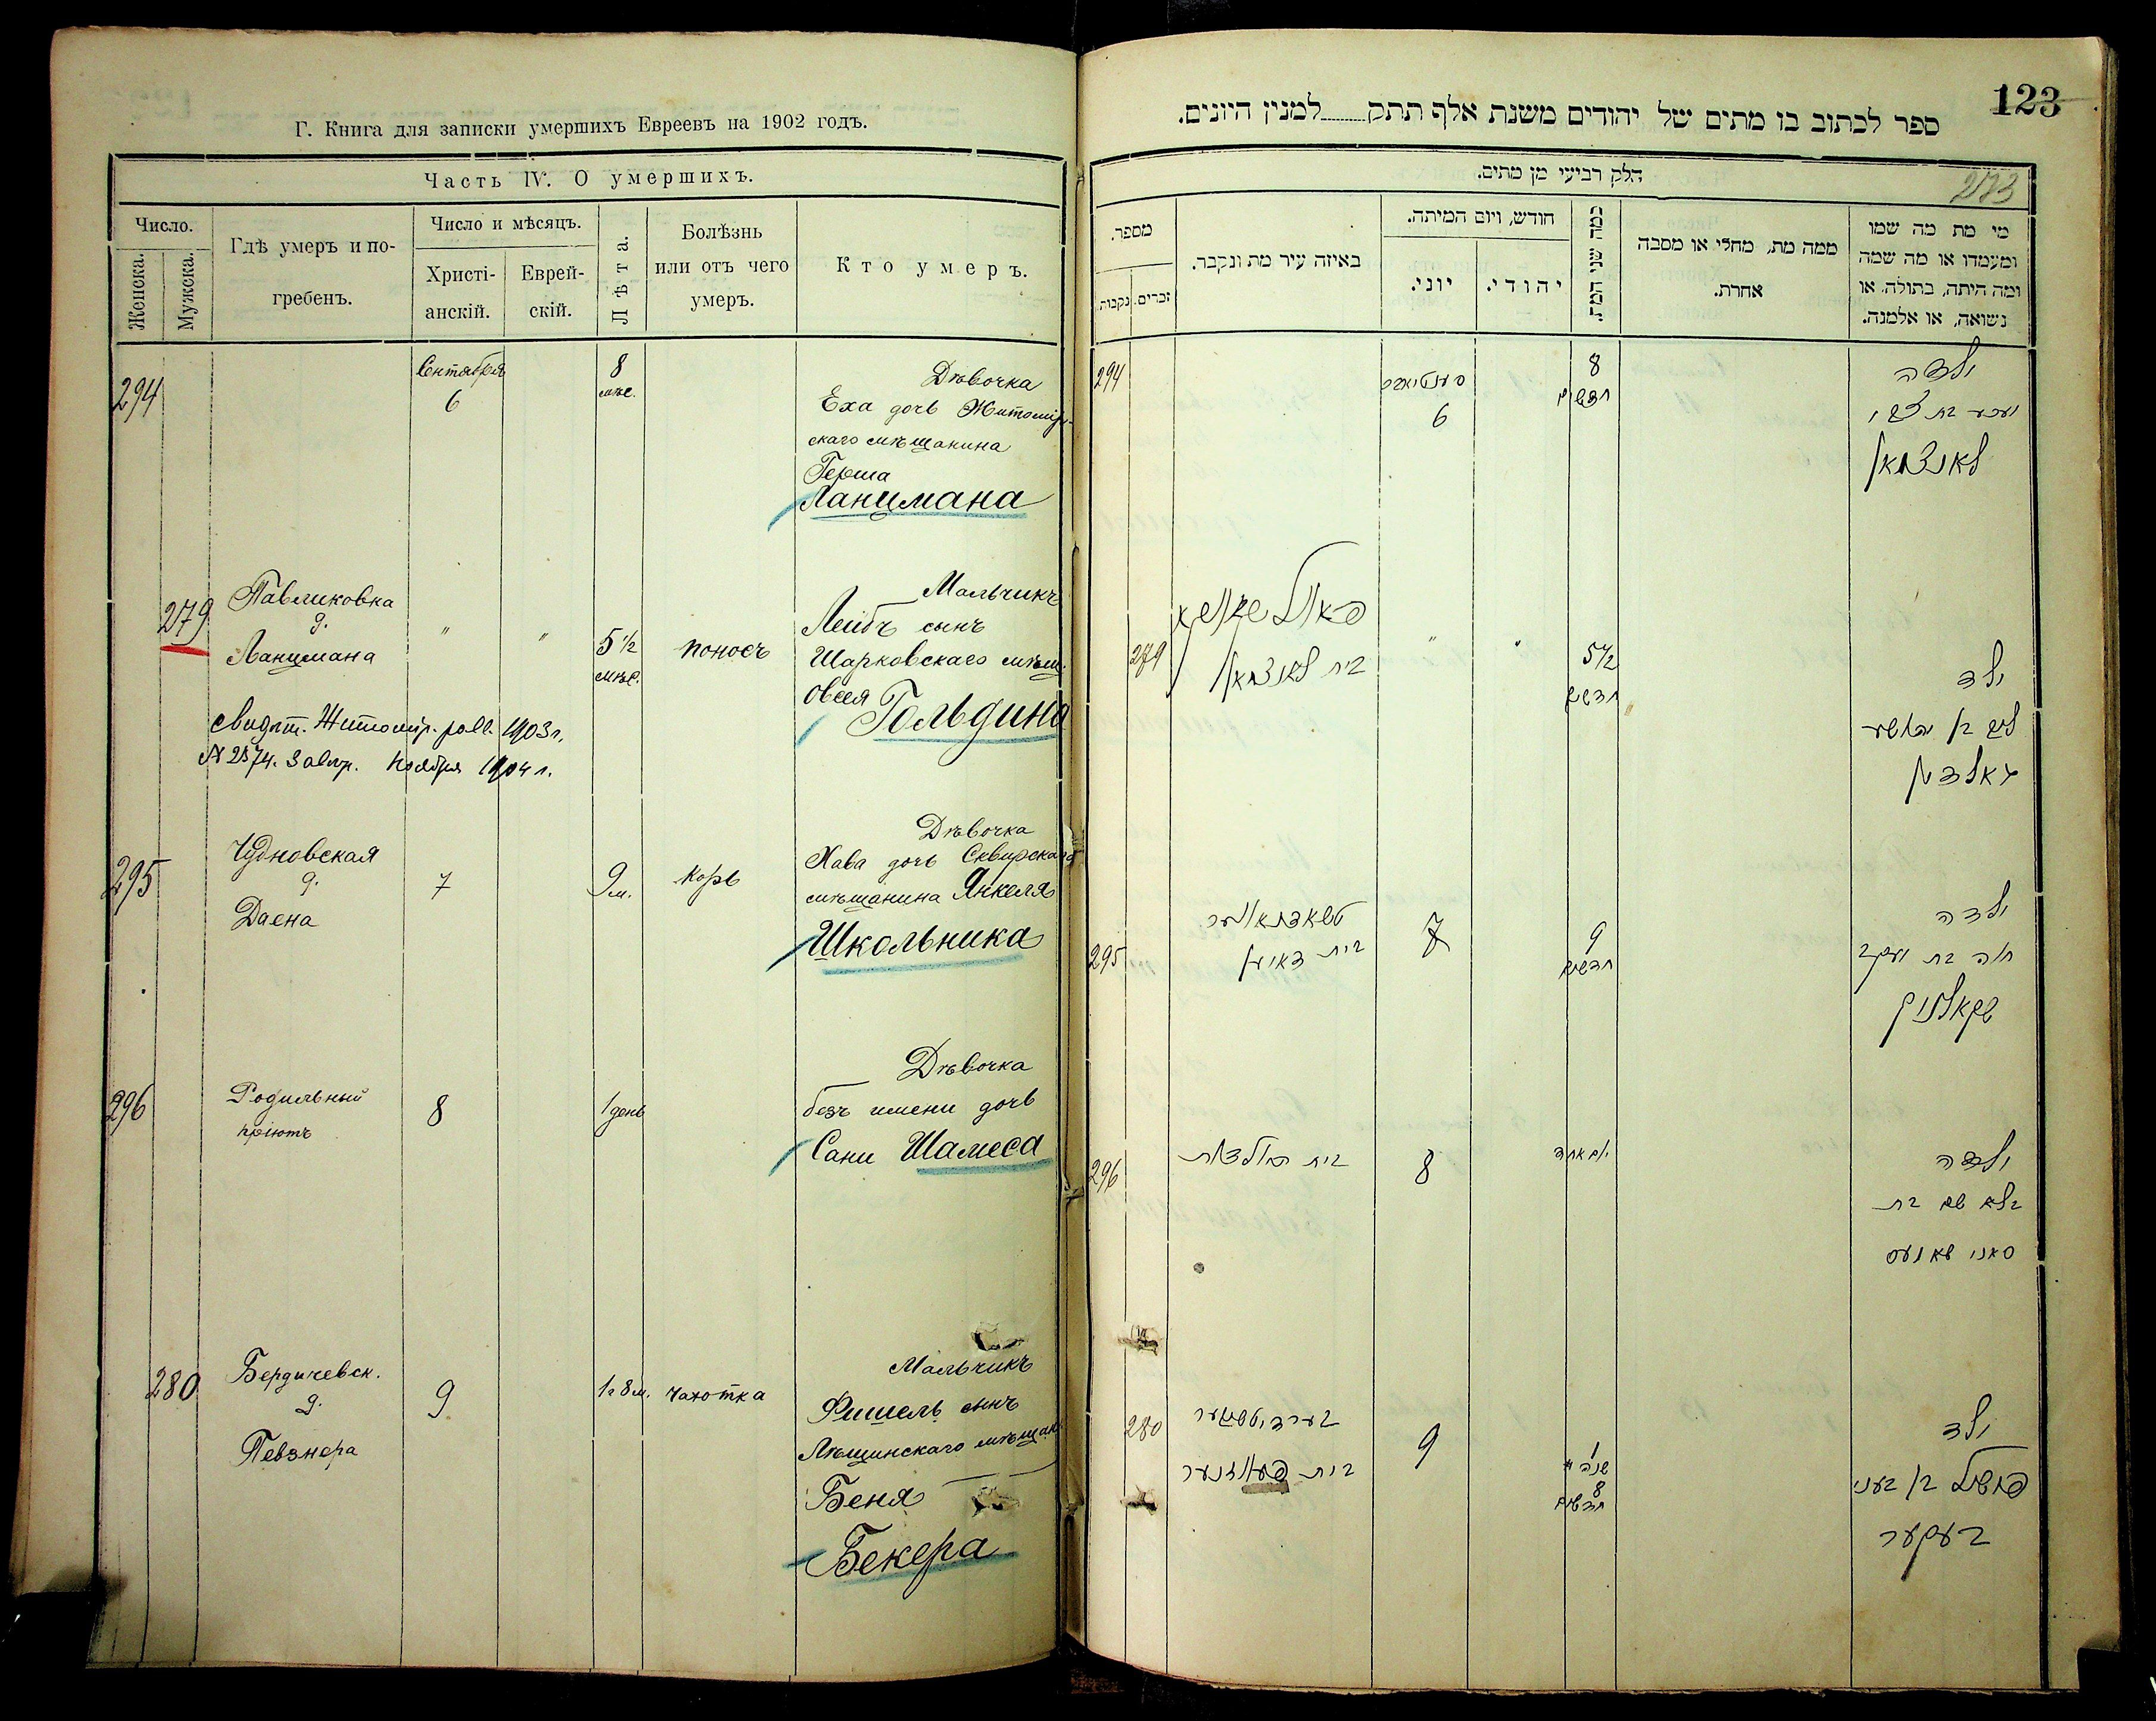 Г. Книга для записки умершихъ Евреевъ на 1902 годъ.
Часть IV. О умершихъ.
Число.
Женска.
Мужска.
Гдѣ умеръ и по-
гребенъ.
Число и мѣсяцъ.
Христі-
анскій.
Еврей-
скій.
Лѣта.
Болѣзнь
или отъ чего
умеръ.
Кто умеръ.
294
Сентября
6
8
мѣс.
Дѣвочка
Еха дочь Житомір-
скаго мѣщанина
Герша
Ланцмана
279
Павликовка
д.
Ланцмана
"
"
5 1/2
мѣс.
поносъ
Мальчикъ
Лейбъ сынъ
Шарковскаго мѣщ.
Овсея Гольдина
свидѣт. Житомір. равв. 1903 г.
№ 2574. 3 ноября 1904 г.
295
Чудновская
д.
Даена
7
9 м.
корь
Дѣвочка
Хава дочь Сквирскаго
мѣщанина Янкеля
Школьника
296
Родильный
пріютъ
8
1 день
Дѣвочка
безъ имени дочь
Сани Шамеса
280
Бердичевск.
д.
Певзнера
9
1 г 8 м.
чахотка
Мальчикъ
Фишель сынъ
мѣщан.
Беня
Бекера
123
ספר לכתוב בו מתים של יהודים משנת אלף תתק למנין היונים.
חלק רביעי מן מתים.
273
מספר.
זכרים.
נקבות.
באיזה עיר מת ונקבר.
חודש, ויום המיתה.
יוני.
יהודי.
כמה שני המת.
ממה מת, מחלי או מסבה
אחרת.
מי מת מה שמו
ומעמדו או מה שמה
ומה היתה, בתולה או
נשואה, או אלמנה.
294
סענטיאבר
6
8
חדשים
ילדה
בת צבי
לאנצמאן
279
פאוולשקווקא
בית לאנצמאן
"
"
5 1/2
חדשים
ילד
ליב בן יהושע
גאלדין
295
טשאדנאווער
בית דאיען
7
9
חדשים
ילדה
חוה בת יעקב
שקאלניק
296
בית הולדות
8
יום אחד
ילדה
בלא שם בת
סאני שאמעס
280
בערדיטשעווער
בית פעווזנער
9
1
שנה
8
חדשים
ילד
פישל בן בעני
בעקער